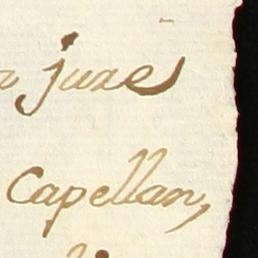 juxe
Capellan,